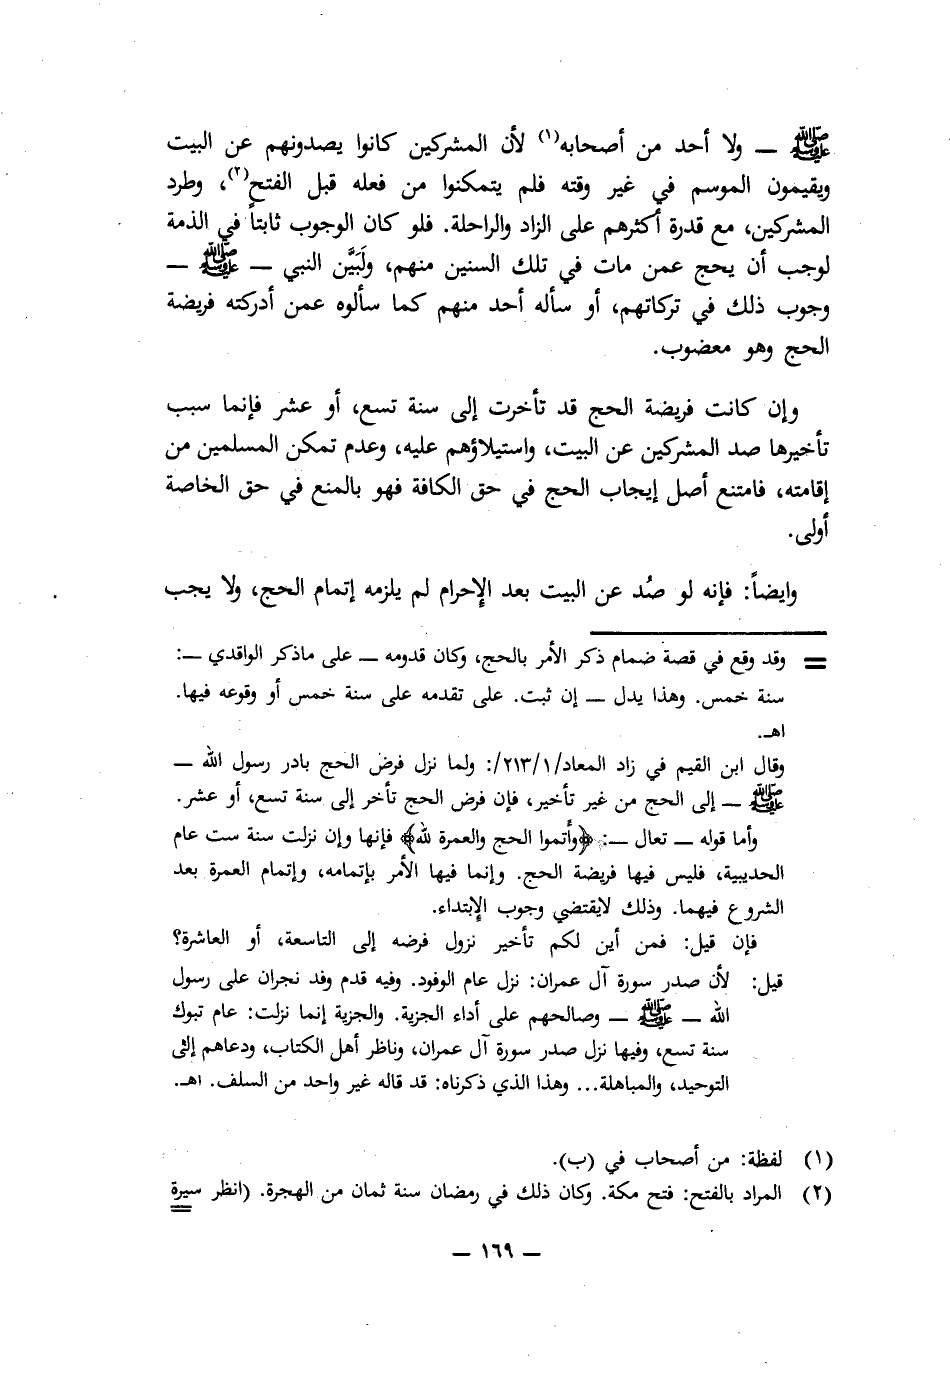 ﷺ — ولا أحد من أصحابه(١) لأن المشركين كانوا يصدونهم عن البيت
ويقيمون الموسم في غير وقته فلم يتمكنوا من فعله قبل الفتح(٢)، وطرد
المشركين، مع قدرة أكثرهم على الزاد والراحلة. فلو كان الوجوب ثابتاً في الذمة
لوجب أن يحج عمن مات في تلك السنين منهم، ولَبَيَّن النبي — ﷺ —
وجوب ذلك في تركاتهم، أو سأله أحد منهم كما سألوه عمن أدركته فريضة
الحج وهو معضوب.
وإن كانت فريضة الحج قد تأخرت إلى سنة تسع، أو عشر فإنما سبب
تأخيرها صد المشركين عن البيت، واستيلاؤهم عليه، وعدم تمكن المسلمين من
إقامته، فامتنع أصل إيجاب الحج في حق الكافة فهو بالمنع في حق الخاصة
أولى.
وايضاً: فإنه لو صُد عن البيت بعد الإحرام لم يلزمه إتمام الحج، ولا يجب
= وقد وقع في قصة ضمام ذكر الأمر بالحج، وكان قدومه — على ماذكر الواقدي —:
سنة خمس. وهذا يدل — إن ثبت. على تقدمه على سنة خمس أو وقوعه فيها.
اهـ.
وقال ابن القيم في زاد المعاد/٢١٣/١/: ولما نزل فرض الحج بادر رسول الله —
ﷺ — إلى الحج من غير تأخير، فإن فرض الحج تأخر إلى سنة تسع، أو عشر.
وأما قوله — تعال —: ﴿وأتموا الحج والعمرة لله﴾ فإنها وإن نزلت سنة ست عام
الحديبية، فليس فيها فريضة الحج. وإنما فيها الأمر بإتمامه، وإتمام العمرة بعد
الشروع فيهما. وذلك لايقتضي وجوب الإبتداء.
فإن قيل: فمن أين لكم تأخير نزول فرضه إلى التاسعة، أو العاشرة؟
قيل: لأن صدر سورة آل عمران: نزل عام الوفود. وفيه قدم وفد نجران على رسول
الله — ﷺ — وصالحهم على أداء الجزية. والجزية إنما نزلت: عام تبوك
سنة تسع، وفيها نزل صدر سورة آل عمران، وناظر أهل الكتاب، ودعاهم إلى
التوحيد، والمباهلة... وهذا الذي ذكرناه: قد قاله غير واحد من السلف. اهـ.
(١) لفظة: من أصحاب في (ب).
(٢) المراد بالفتح: فتح مكة. وكان ذلك في رمضان سنة ثمان من الهجرة. (انظر سيرة =
— ١٦٩ —